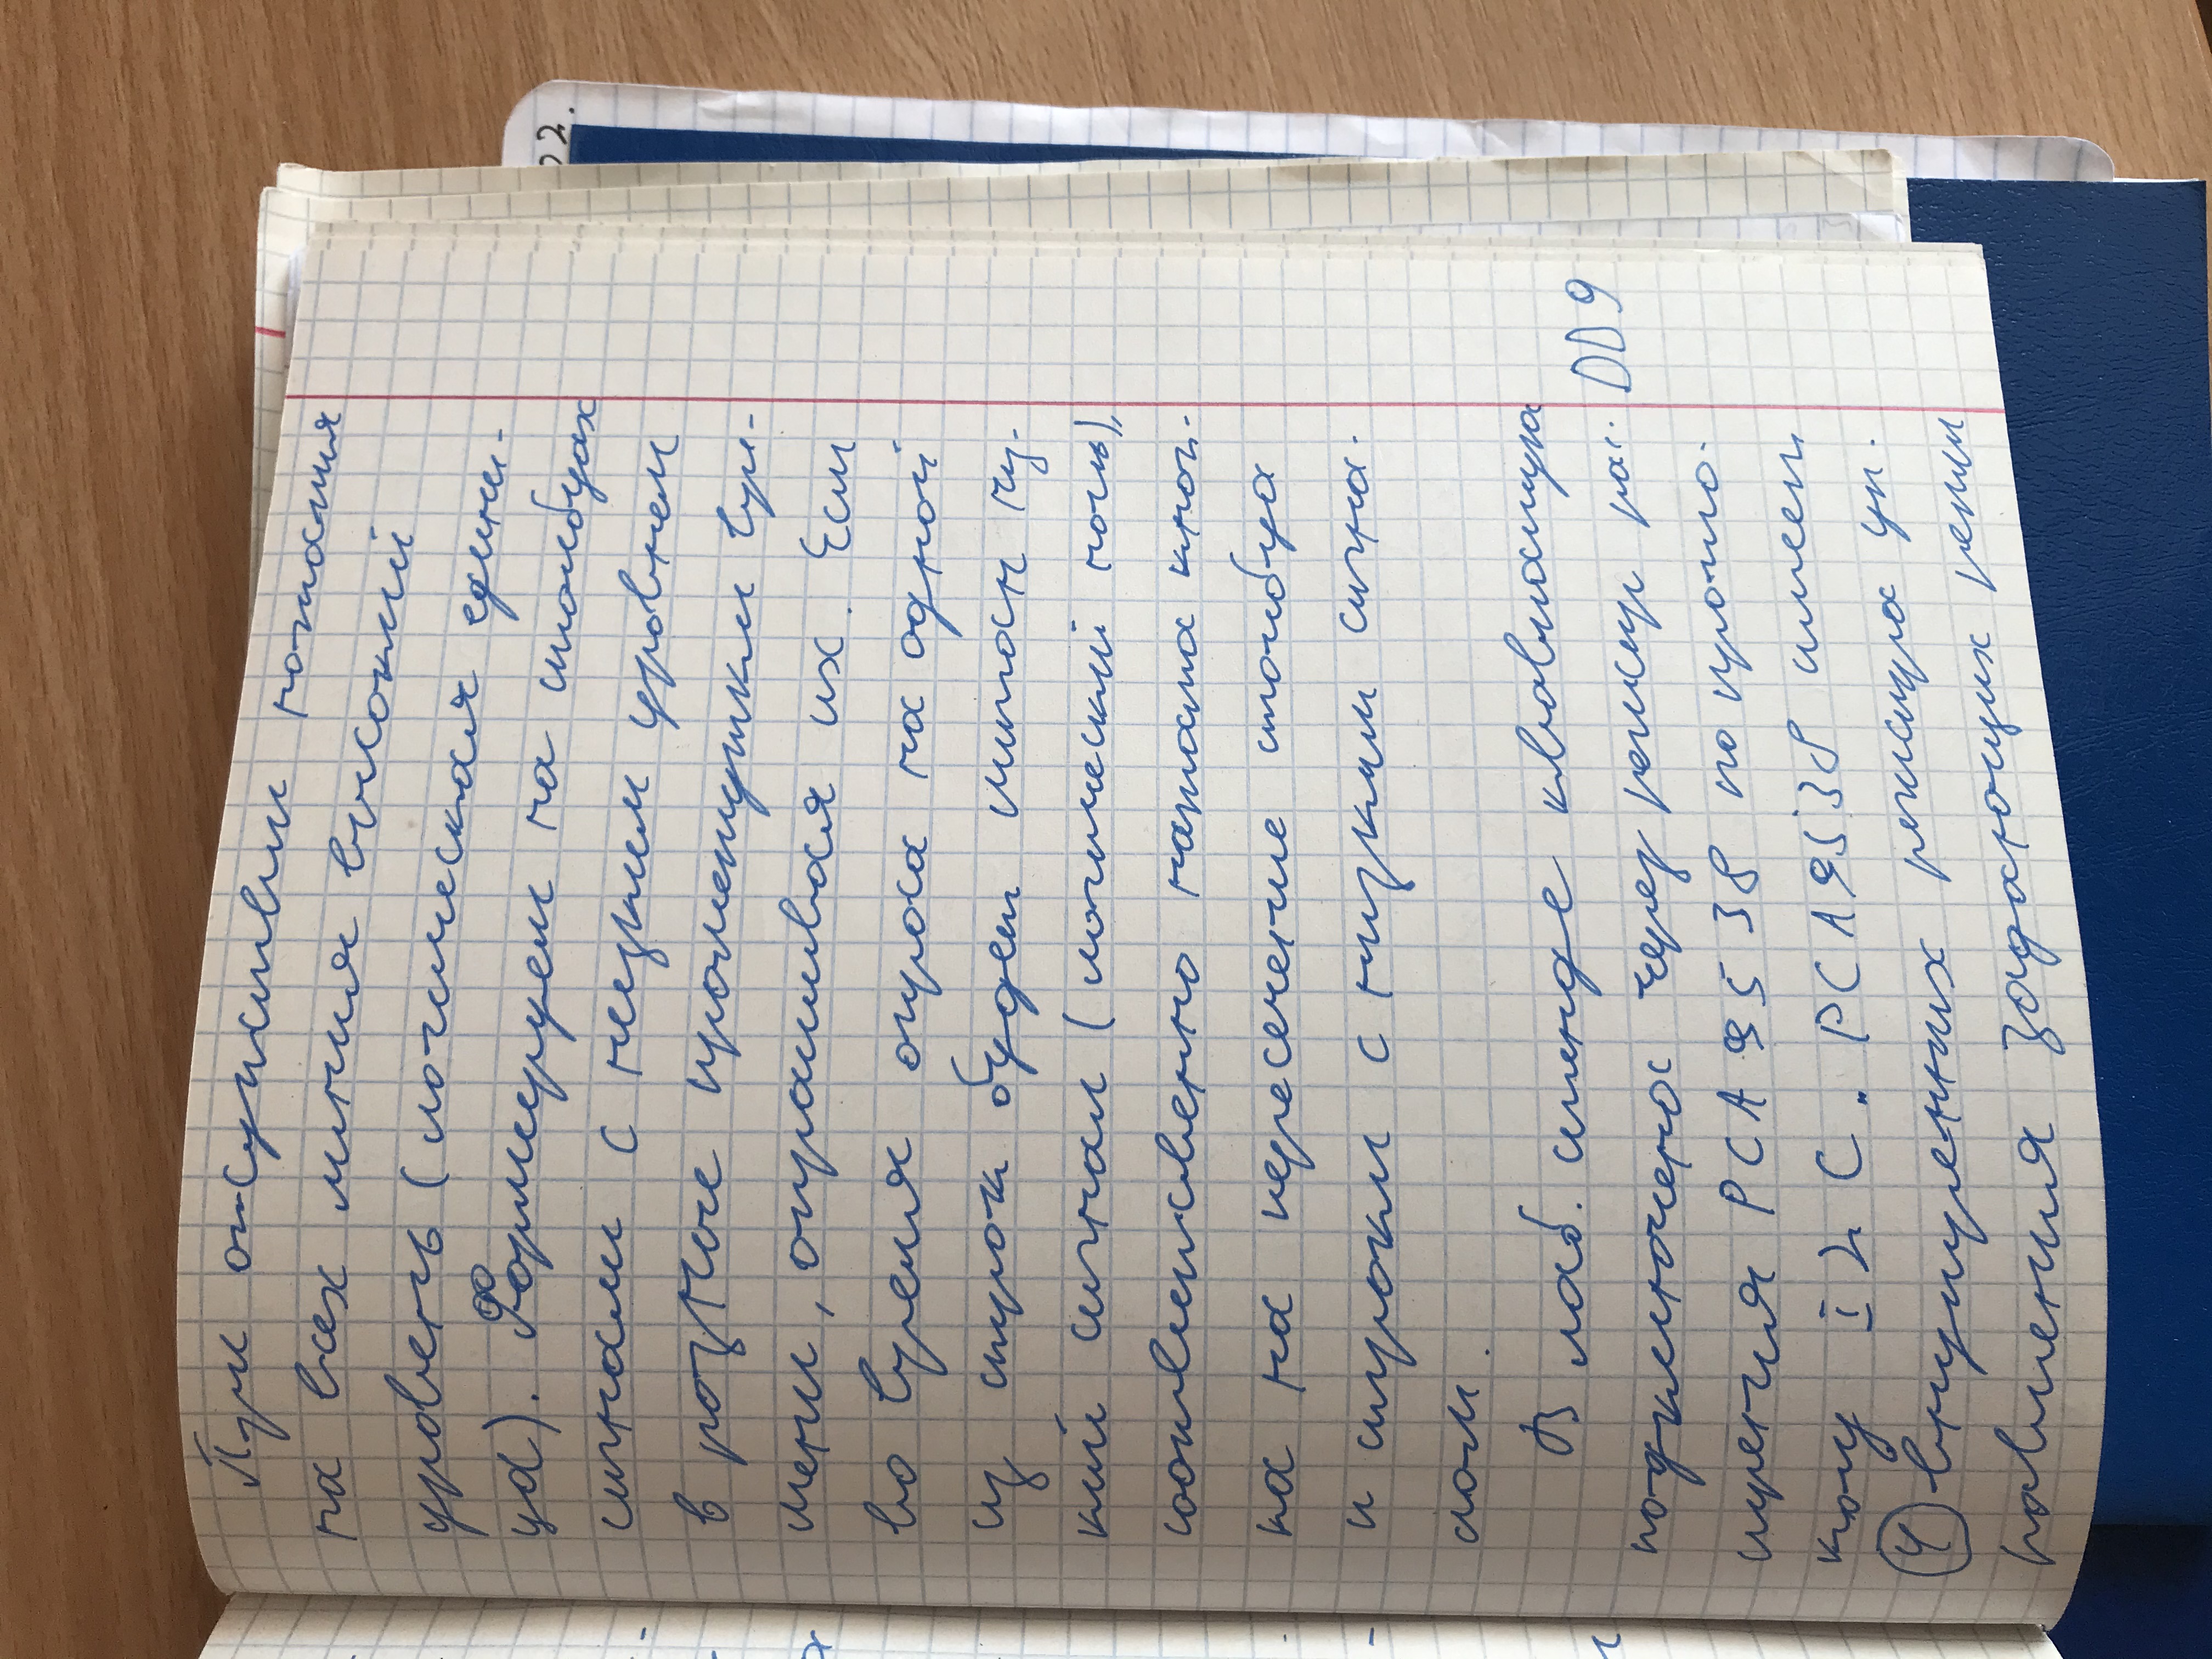 При отсутствии нажатия
на всех линия высокий
уровень (логическая едини-
ца). Формируем на столбцах
сигнали с низким уровнем
в разные промежутки вре-
мени, опрашивая их. Если
во время опроса на одной
из строк будет считан низ-
кий сигнал (логический ноль),
соответственно нажата кноп-
ка на пересечение столбца
и строки с низким сигна-
лом.
В лаб. стенде клавиатура
подключена через регистр рас- DD9
ширения PCA9538 по прото-
колу I2C. PCA9538 имеет
4 внутренних регистра уп-
равления задающих режим
22.